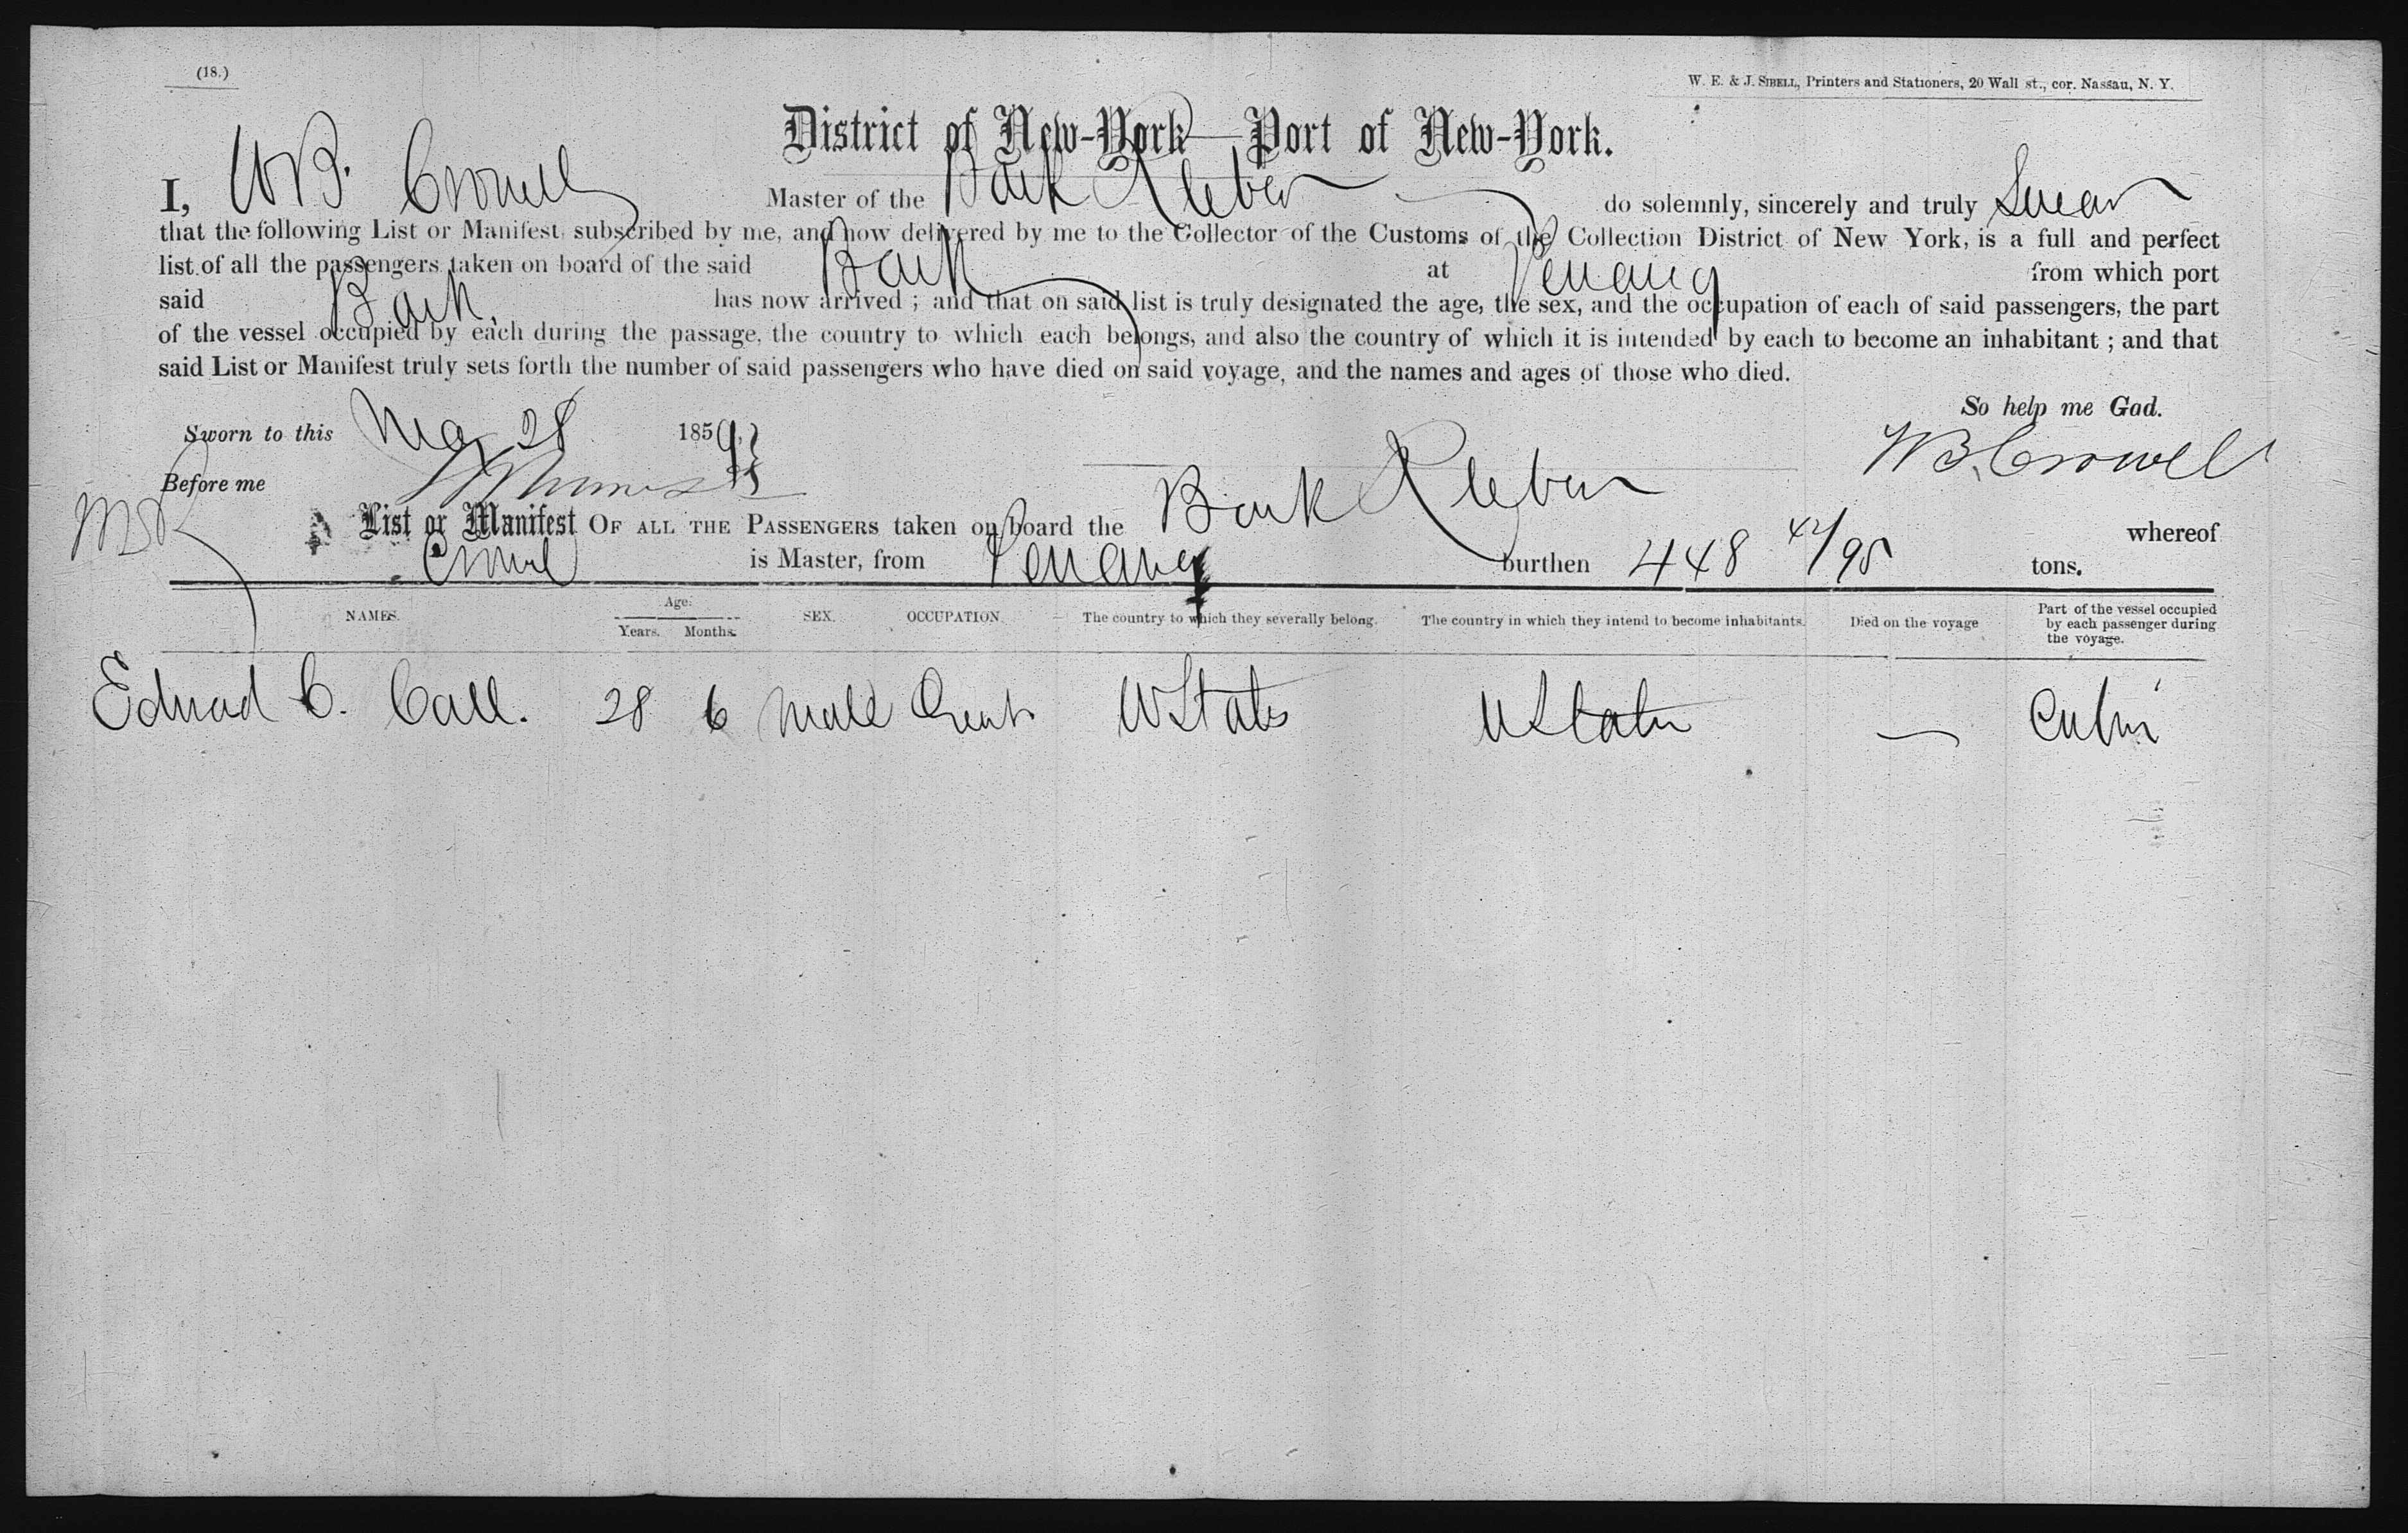 (18.)
W. E. & J. SIBELL, Printers and Stationers, 20 Wall st., cor. Nassau, N. Y.
District of New-York—Port of New-York.
I, W B. Crowell Master of the Bark Kleber do solemnly, sincerely and truly Swear
that the following List or Manifest, subscribed by me, and now delivered by me to the Collector of the Customs of the Collection District of New York, is a full and perfect
list of all the passengers taken on board of the said Bark at Penang from which port
said Bark has now arrived ; and that on said list is truly designated the age, the sex, and the occupation of each of said passengers, the part
of the vessel occupied by each during the passage, the country to which each belongs, and also the country of which it is intended by each to become an inhabitant ; and that
said List or Manifest truly sets forth the number of said passengers who have died on said voyage, and the names and ages of those who died.
So help me Gad.
Sworn to this May 28 1859
W B. Crowell
Before me
List or Manifest OF ALL THE PASSENGERS taken on board the Bark Kleber whereof
Crowel is Master, from Penang burthen 448 42/95 tons.
NAMES. Age. Years. Months. SEX. OCCUPATION. The country to which they severally belong. The country in which they intend to become inhabitants. Died on the voyage Part of the vessel occupied by each passenger during the voyage.
Edward C. Call. 28 6 Male Gent U States U States — Cabin